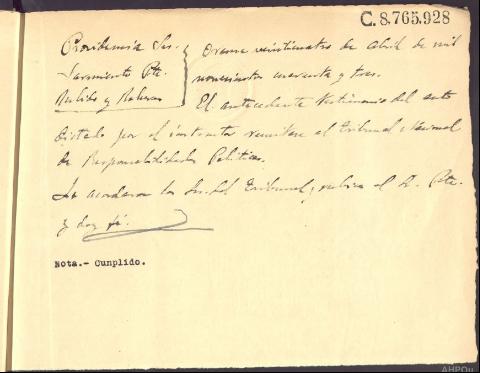 C.8.765.928
Providencia Srs.
Sarmiento Pte.
Pulido y
Orense veinticuatro de abril de mil
novecientos cuarenta y tres.
El antecedente testimonio del auto
dictado por el instructor remítase al Tribunal Nacional
de Responsabilidades Politicas.
Lo acordaron los Srs. del Tribunal, rubrica el Sr. Pte.
y doy fé.
Nota.- Cunplido.
AHPOu